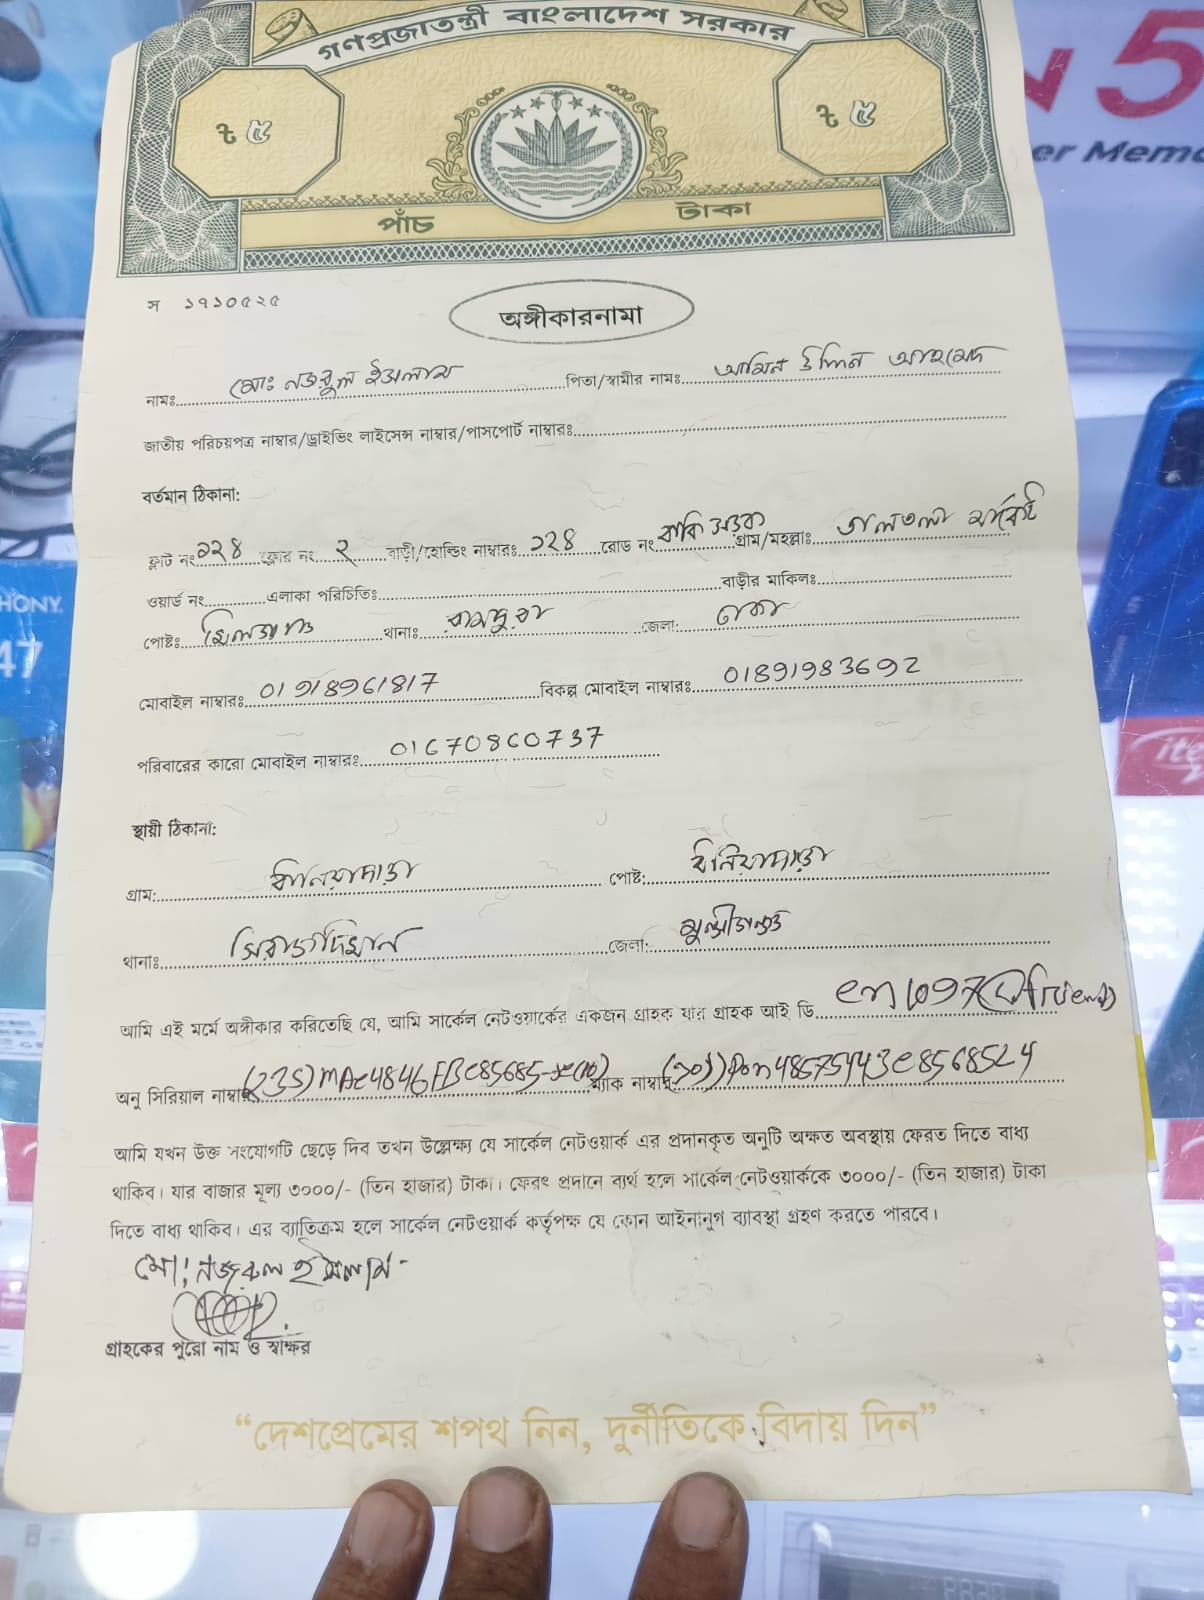 গণপ্রজাতন্ত্রী বাংলাদেশ সরকার
৳ ৫ ৳ ৫
পাঁচ টাকা
N 5
er Memo
স ১৭১০৫২৫
অঙ্গীকারনামা
নামঃ মোঃ নজরুল ইসলাম পিতা/স্বামীর নামঃ আমিন উদ্দিন আহমেদ
জাতীয় পরিচয়পত্র নাম্বার/ড্রাইভিং লাইসেন্স নাম্বার/পাসপোর্ট নাম্বারঃ
বর্তমান ঠিকানা:
ফ্লাট নং ১২৪ ফ্লোর নং ২ বাড়ী/হোল্ডিং নাম্বারঃ ১২৪ রোড নং সড়ক গ্রাম/মহল্লাঃ তালতলা মার্কেট
ওয়ার্ড নং এলাকা পরিচিতিঃ বাড়ীর মাকিলঃ
পোষ্টঃ খিলগাও থানাঃ রামপুরা জেলা: ঢাকা
মোবাইল নাম্বারঃ 01918961817 বিকল্প মোবাইল নাম্বারঃ 01891983692
পরিবারের কারো মোবাইল নাম্বারঃ 01670860737
স্থায়ী ঠিকানা:
গ্রাম: পোষ্ট:
থানাঃ সিরাজদিখান জেলা: মুন্সীগঞ্জ
আমি এই মর্মে অঙ্গীকার করিতেছি যে, আমি সার্কেল নেটওয়ার্কের একজন গ্রাহক যার গ্রাহক আই ডি
অনু সিরিয়াল নাম্বার ম্যাক নাম্বার
আমি যখন উক্ত সংযোগটি ছেড়ে দিব তখন উল্লেক্ষ্য যে সার্কেল নেটওয়ার্ক এর প্রদানকৃত অনুটি অক্ষত অবস্থায় ফেরত দিতে বাধ্য
থাকিব। যার বাজার মূল্য ৩০০০/- (তিন হাজার) টাকা। ফেরৎ প্রদানে ব্যর্থ হলে সার্কেল নেটওয়ার্ককে ৩০০০/- (তিন হাজার) টাকা
দিতে বাধ্য থাকিব। এর ব্যাতিক্রম হলে সার্কেল নেটওয়ার্ক কর্তৃপক্ষ যে কোন আইনানুগ ব্যাবস্থা গ্রহণ করতে পারবে।
মো: নজরুল ইসলাম
গ্রাহকের পুরো নাম ও স্বাক্ষর
“দেশপ্রেমের শপথ নিন, দুর্নীতিকে বিদায় দিন”
HONY
47
ite